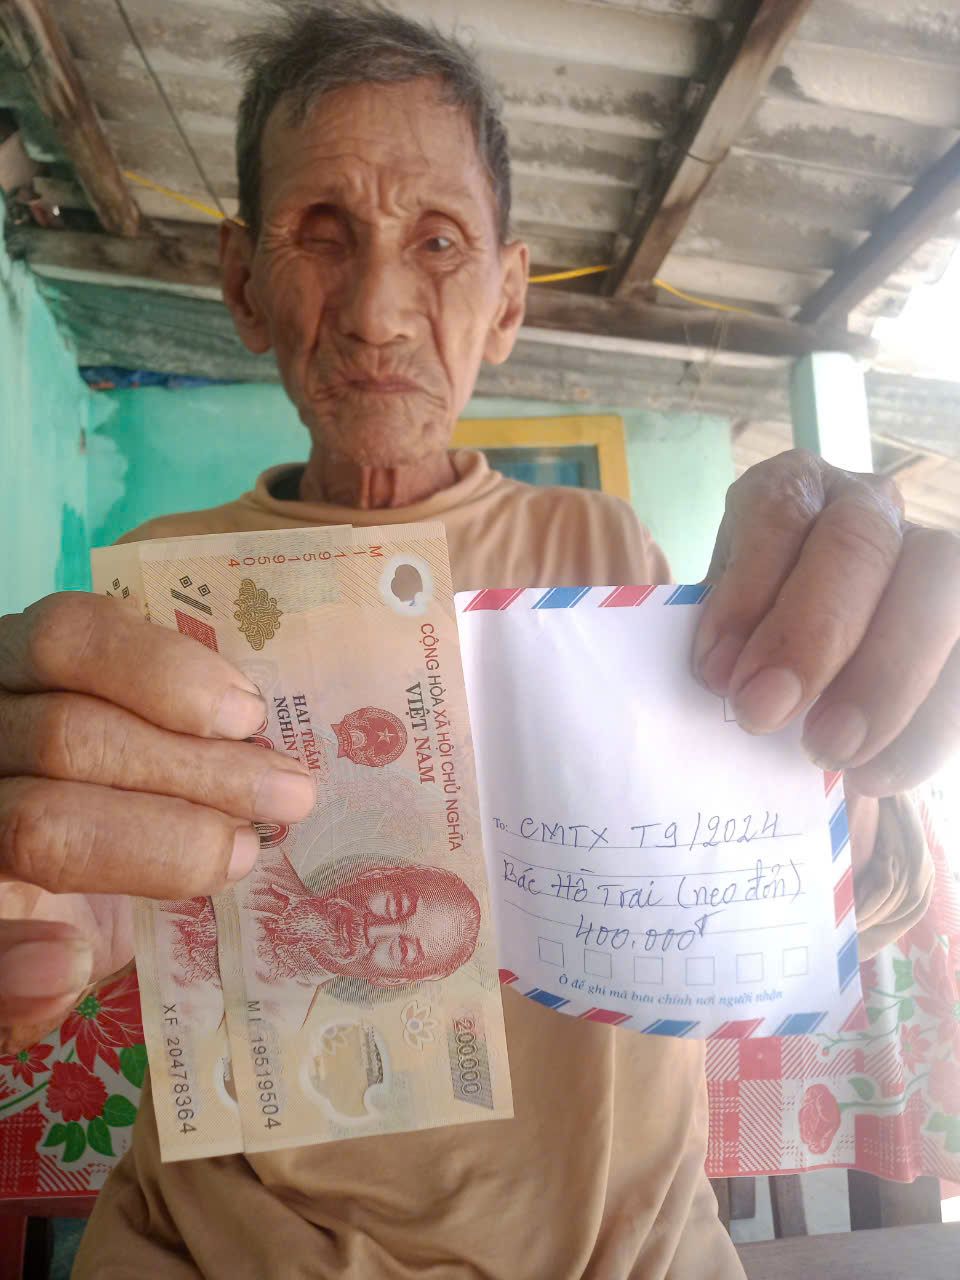 MI 19519504
CỘNG HÒA XÃ HỘI CHỦ NGHĨA
VIỆT NAM
HAI TRĂM
NGHÌN
200000
MI 19519504
XF 20478364
To: CMTX T9/2024
Bác Hồ Trai (neo đơn)
400.000đ
Ô để ghi mã bưu chính nơi người nhận